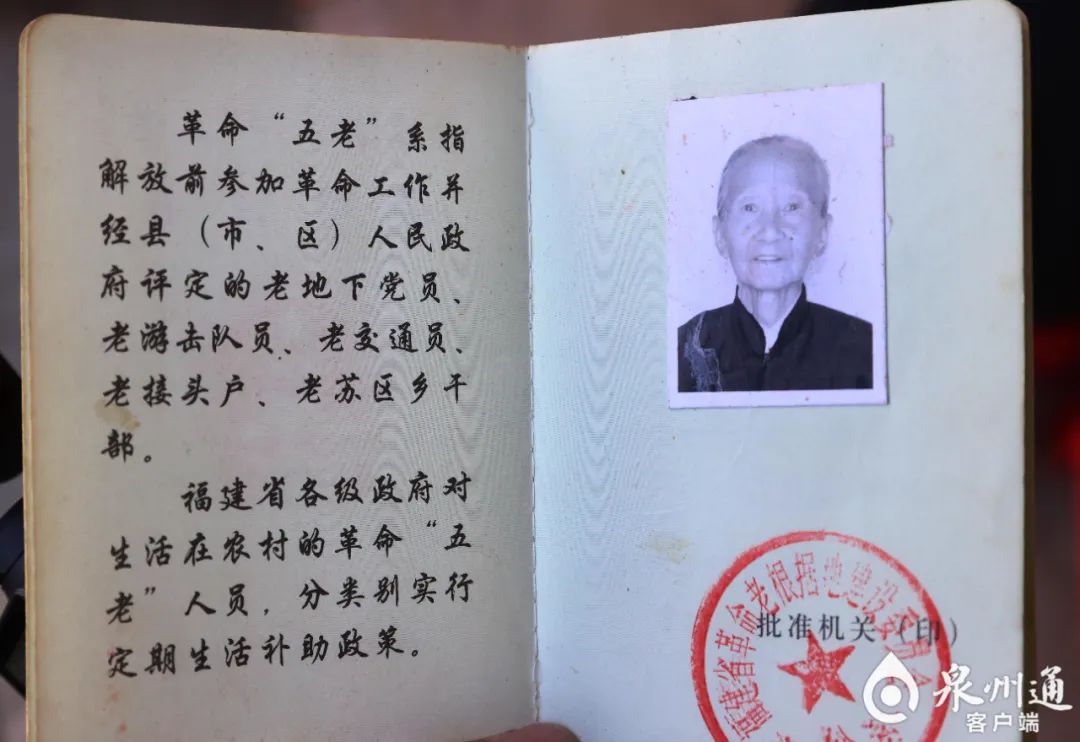 革命“五老”系指
解放前参加革命工作并
经县（市、区）人民政
府评定的老地下党员、
老游击队员、老交通员、
老接头户、老苏区乡干
部。
福建省各级政府对
生活在农村的革命“五
老”人员，分类别实行
定期生活补助政策。
福建省革命老根据地建设委员会
批准机关（印）
泉州通
客户端